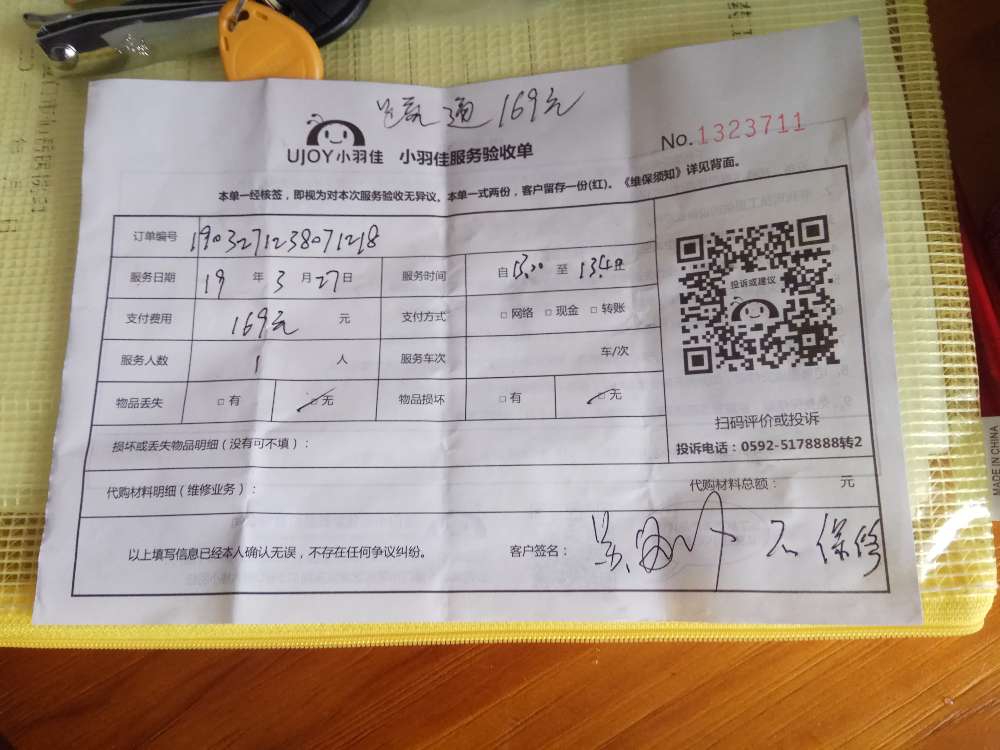 通 169元
UJOY小羽佳 小羽佳服务验收单
No.1323711
本单一经核签，即视为对本次服务验收无异议。本单一式两份，客户留存一份(红)。《维保须知》详见背面。
订单编号 1903271238071218
服务日期 19 年 3 月 27 日 服务时间 自 13:00 至
支付费用 169元 元 支付方式 □ 网络 □ 现金 □ 转账
服务人数 1 人 服务车次 车/次
物品丢失 □ 有 □ 无 物品损坏 □ 有 □ 无
投诉或建议
扫码评价或投诉
投诉电话：0592-5178888转2
损坏或丢失物品明细（没有可不填）：
代购材料明细（维修业务）： 代购材料总额： 元
以上填写信息已经本人确认无误，不存在任何争议纠纷。 客户签名： 不保修
MADE IN CHINA